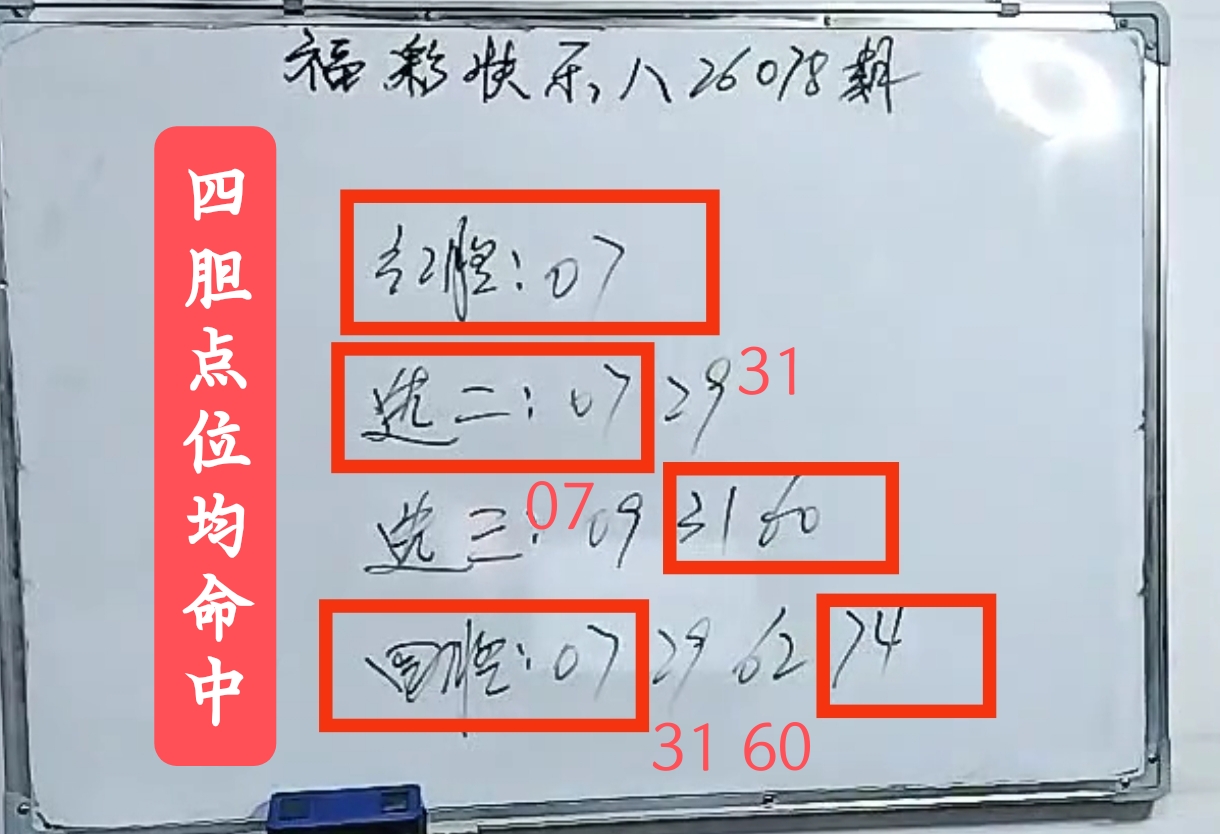 福彩快乐八26078期
四胆点位均命中
红胆:07
选二:07 29
31
选三: 09 31 60
07
四胆:07 29 62 74
31 60